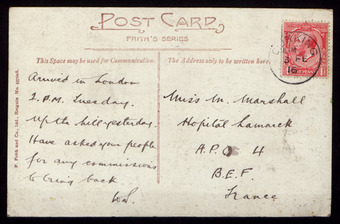 POST CARD
FRITH'S SERIES
This Space may be used for Communication.
The Address only to be written here.
F. Frith and Co., Ltd., Reigate
Arrived in London
2 P.M. Tuesday.
Up the hill yesterday.
Have asked your people
for any commissions
to bring back
Miss M. Marshall
Hopital Lamarck
A.P.O 4
B.E.F.
France
3 FE
16